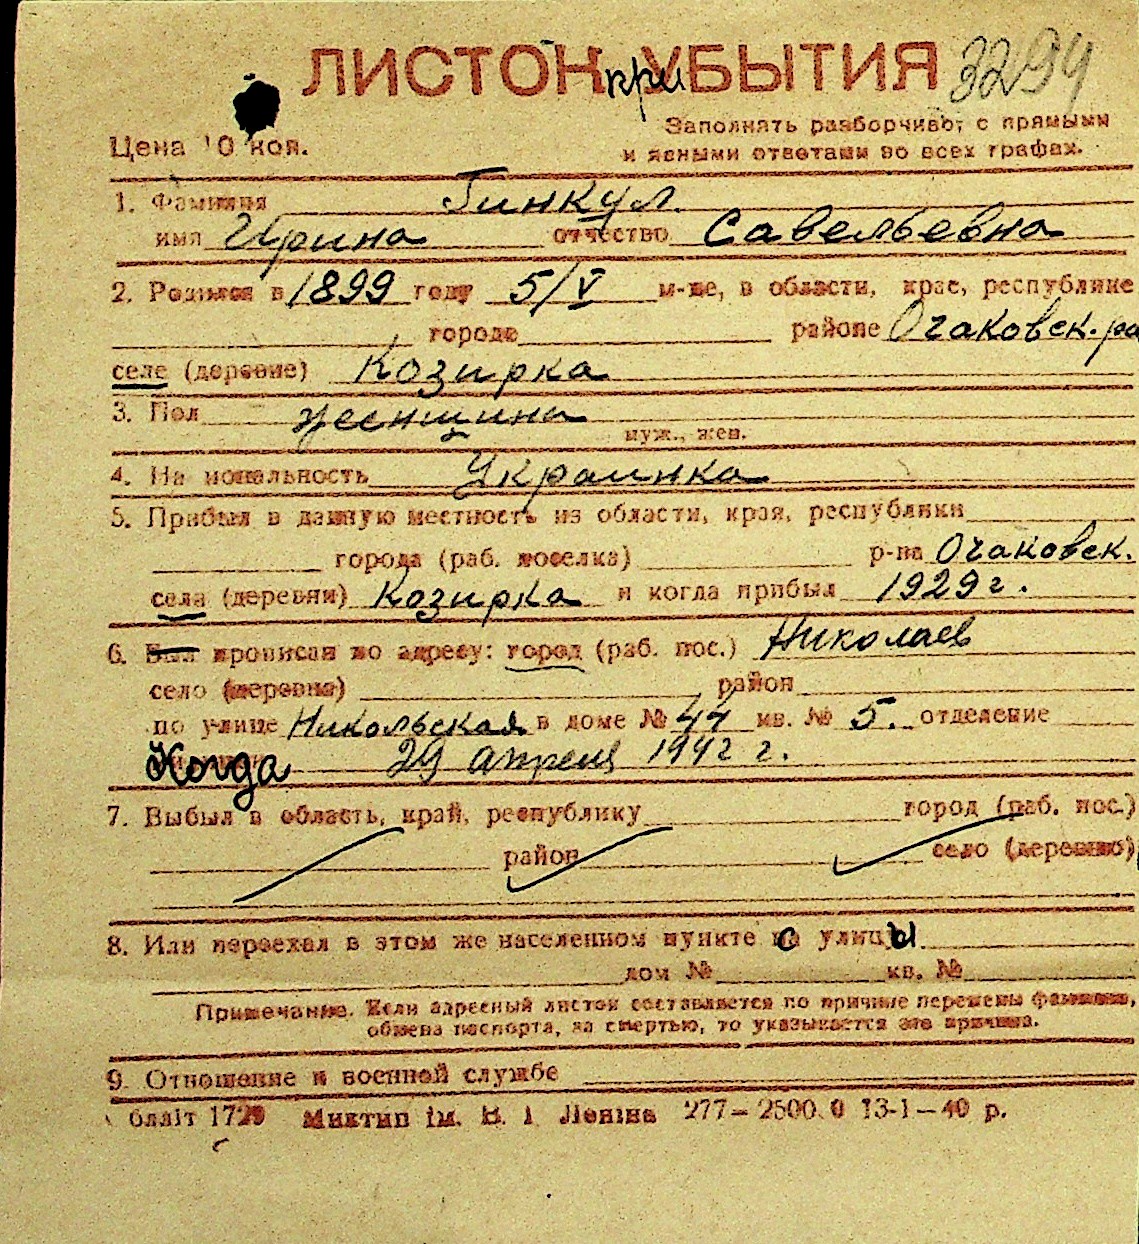 ЛИСТОК при УБЫТИЯ 3294
Цена 10 коп.
Заполнять разборчиво, с прямыми
и ясными ответами во всех графах.
1. Фамилия Гинкул
имя Ирина отчество Савельевна
2. Родился в 1899 году 5/V м-це, в области, крае, республике
городе районе Очаковск. ра
селе (деревне) Козирка
3. Пол женщина
муж., жен.
4. Национальность Украинка
5. Прибыл в данную местность из области, края, республики
города (раб. поселка) р-на Очаковск.
села (деревни) Козирка и когда прибыл 1929 г.
6. Был прописан по адресу: город (раб. пос.) Николаев
село (деревня) район
по улице Никольская в доме № 44 кв. № 5. отделение
Когда 29 апреля 1942 г.
7. Выбыл в область, край, республику город (раб. пос.)
район село (деревню)
8. Или переехал в этом же населенном пункте с улицы
дом № кв. №
Примечание. Если адресный листок составляется по причине перемены фамилии,
обмена паспорта, за смертью, то указывается эта причина.
9. Отношение к военной службе
бліт 1729 Миктип ім. В. І Леніна 277—2500.0 13-1—40 р.